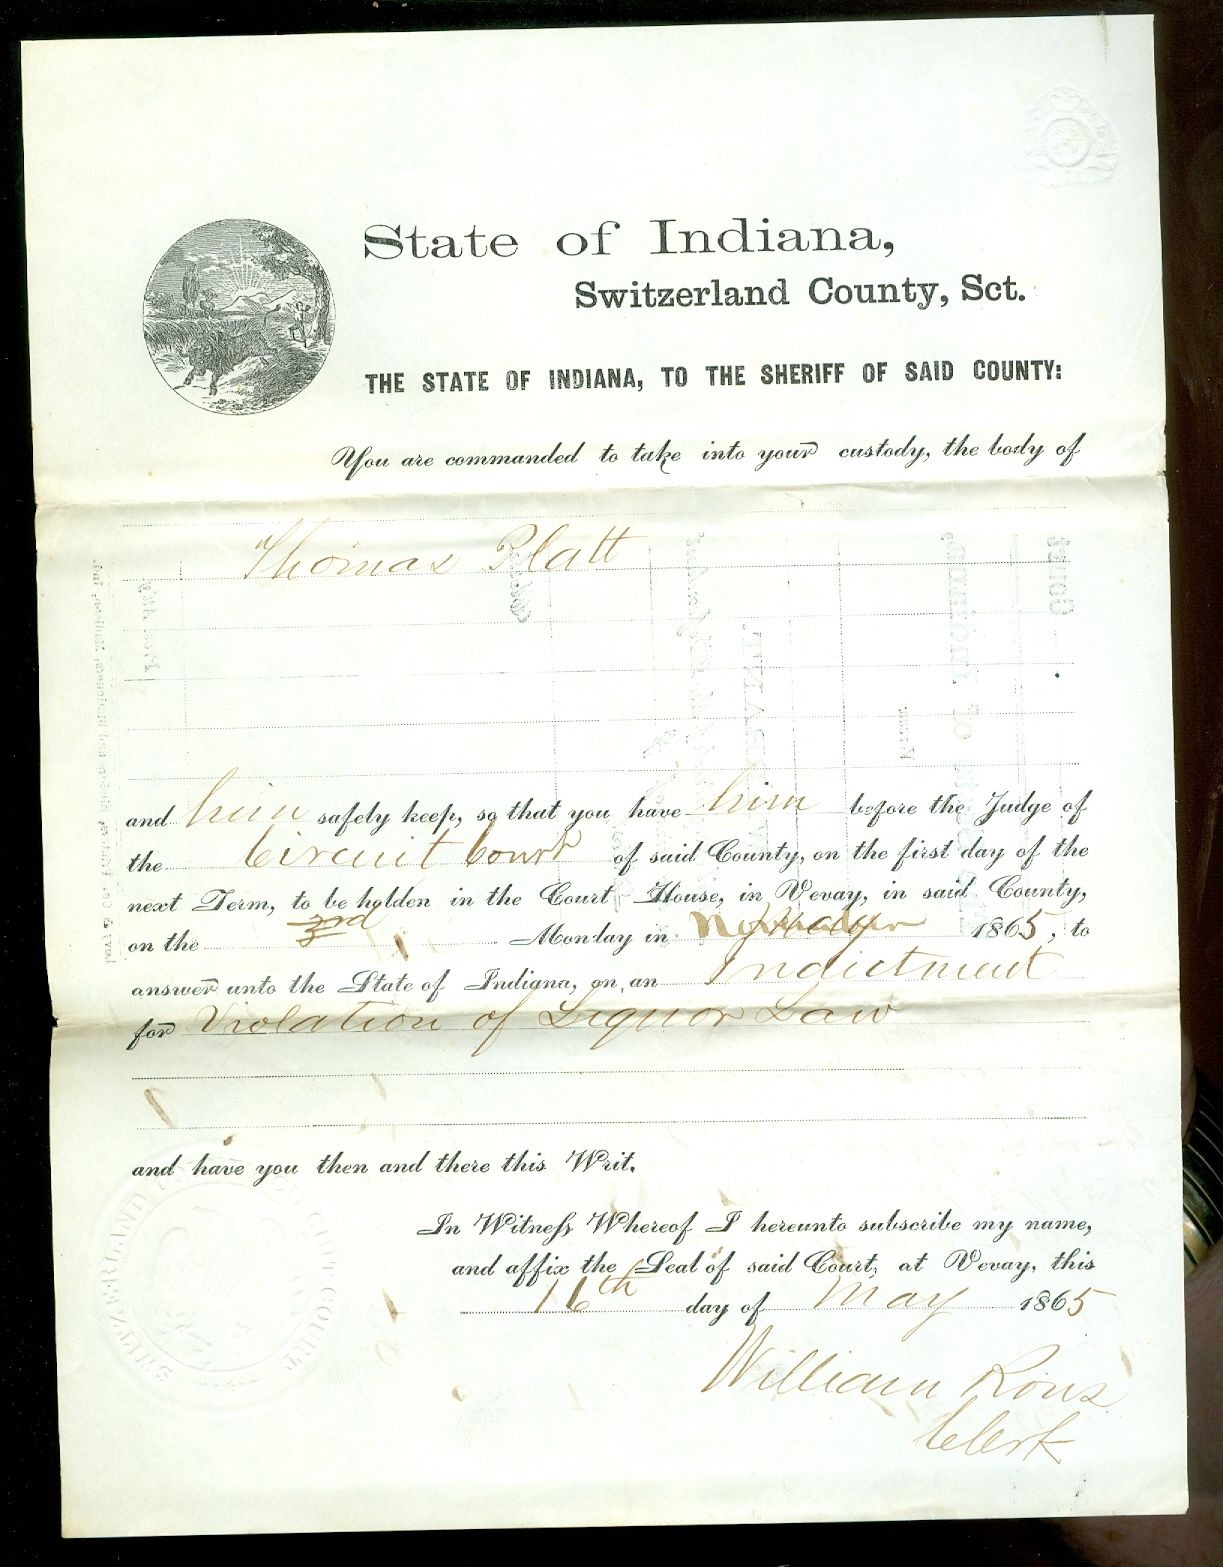 State of Indiana,
Switzerland County, Sct.
THE STATE OF INDIANA, TO THE SHERIFF OF SAID COUNTY:
You are commanded to take into your custody, the body of
Thomas Platt
and him safely keep, so that you have him before the Judge of
the Circuit Court of said County, on the first day of the
next Term, to be holden in the Court House, in Vevay, in said County,
on the 3rd Monday in 1865, to
answer unto the State of Indiana, on an Indictment
for Violation of Liquor Law
and have you then and there this Writ.
In Witness Whereof I hereunto subscribe my name,
and affix the Seal of said Court, at Vevay, this
16th day of May 1865
William Rous
Clerk
SWITZERLAND CIRCUIT COURT